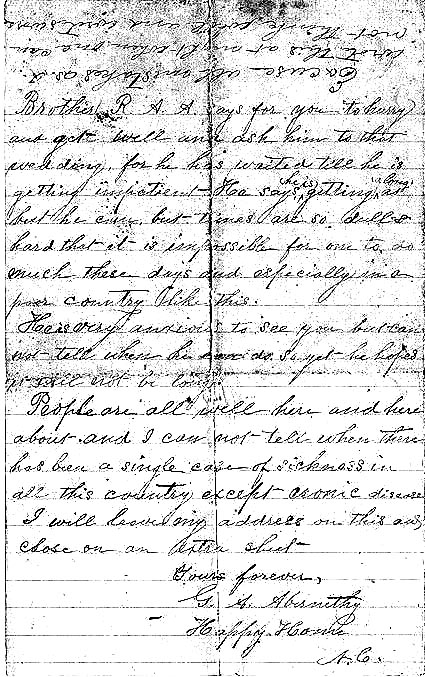 Excuse all mistakes as I
wrot this at night when one can
not think, spell and
Brother R. A. A. says for you to hurry
and get well and ask him to that
wedding, for he has waited till he is
getting impatient. He says he is getting along
but he can, but times are so dull &
hard that it is impossible for one to do
much these days and especially in a
poor country like this.
He is very anxious to see you but can
not tell when he can do so yet he hopes
it will not be long.
People are all well here and here
about and I can not tell when there
has been a single case of sickness in
all this country except cronic disease
I will leave my address on this and
close on an extra sheet
Yours forever,
G. A. Abernethy
Happy Home
N.C.